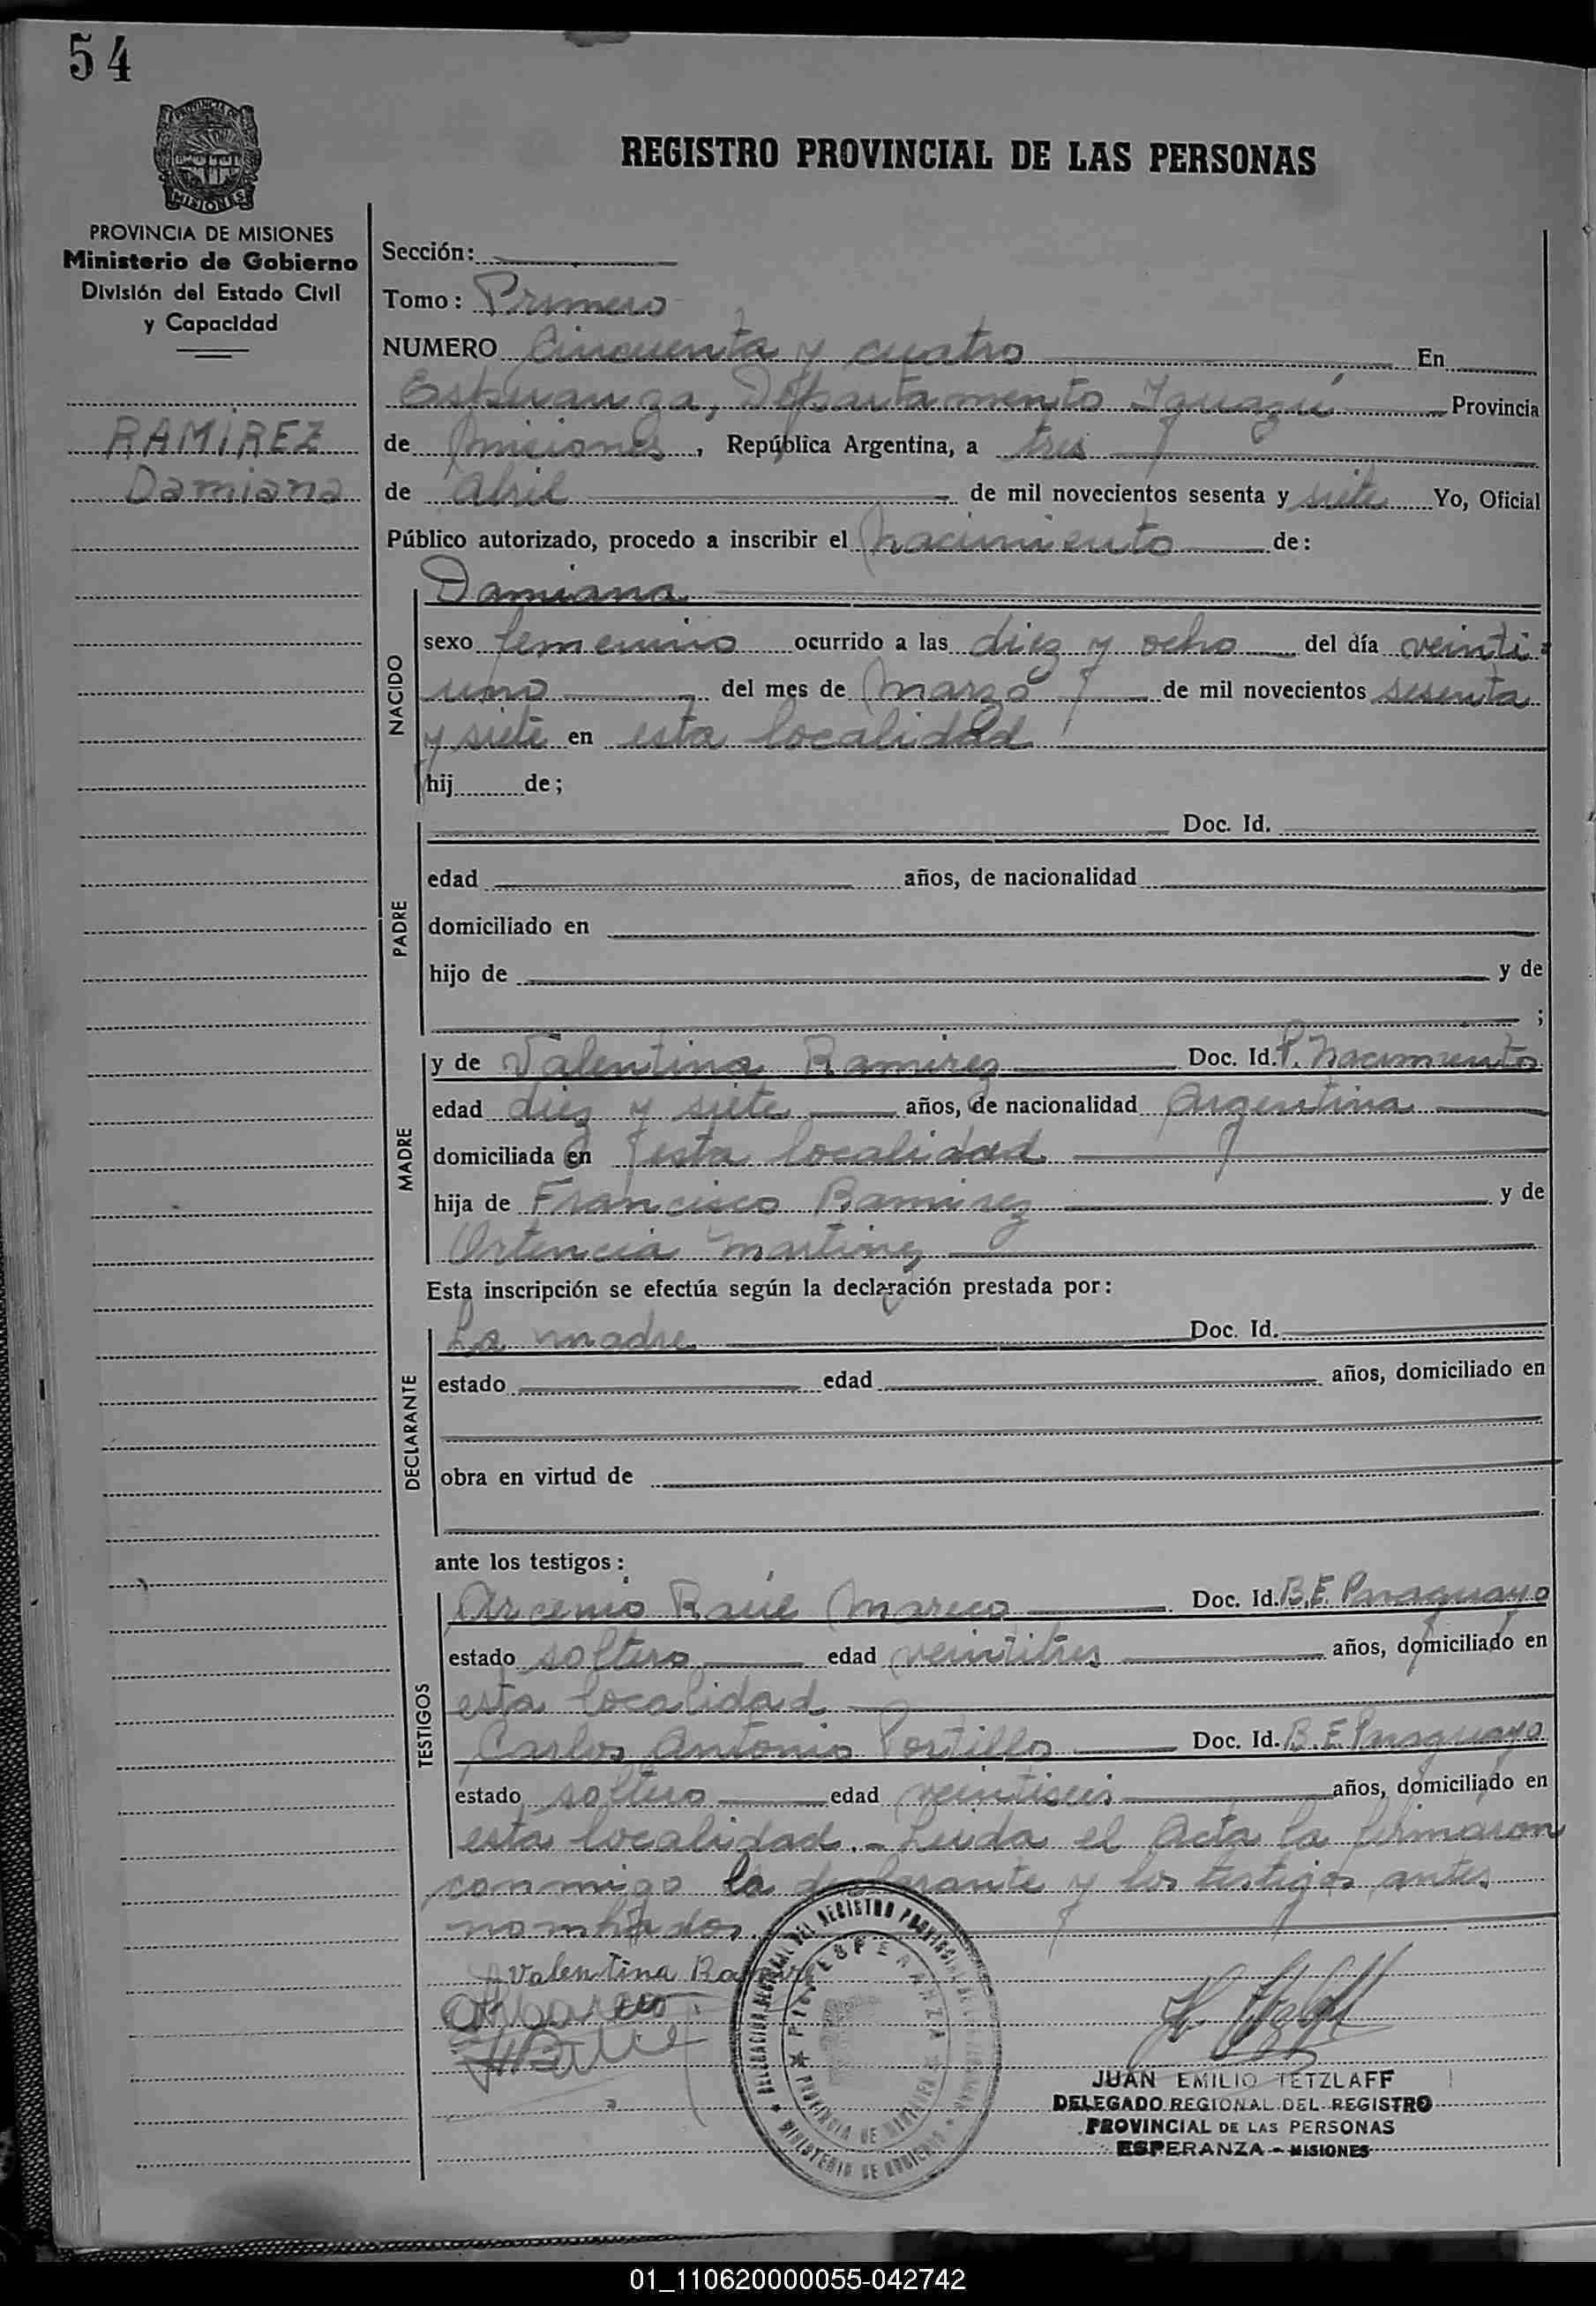 54
PROVINCIA DE
MISIONES
REGISTRO PROVINCIAL DE LAS PERSONAS
PROVINCIA DE MISIONES
Ministerio de Gobierno
División del Estado Civil
y Capacidad
RAMIREZ
Damiana
Sección:
Tomo: Primero
NUMERO Cincuenta y cuatro En
Esperanza, Departamento Iguazú Provincia
de Misiones, República Argentina, a tres
de Abril de mil novecientos sesenta y siete Yo, Oficial
Público autorizado, procedo a inscribir el nacimiento de:
NACIDO
Damiana
sexo femenino ocurrido a las diez y ocho del día veinti-
uno del mes de Marzo de mil novecientos sesenta
y siete en esta localidad
hij de;
PADRE
Doc. Id.
edad años, de nacionalidad
domiciliado en
hijo de y de
;
MADRE
y de Valentina Ramirez Doc. Id. P. Nacimiento
edad diez y siete años, de nacionalidad Argentina
domiciliada en esta localidad
hija de Francisco Ramirez y de
Ortencia Martinez
Esta inscripción se efectúa según la declaración prestada por:
DECLARANTE
La madre Doc. Id.
estado edad años, domiciliado en
obra en virtud de
ante los testigos:
TESTIGOS
Arcenio Raúl Mareco Doc. Id. B.E. Paraguayo
estado soltero edad veintitres años, domiciliado en
esta localidad
Carlos Antonio Portillo Doc. Id. B.E. Paraguayo
estado soltero edad veintiseis años, domiciliado en
esta localidad.- Leida el Acta la firmaron
conmigo la declarante y los testigos antes
nombrados.
Valentina Ramirez
DELEGACION REGIONAL DEL REGISTRO PROVINCIAL DE LAS PERSONAS
ESPERANZA
PROVINCIA DE MISIONES
MINISTERIO DE GOBIERNO
JUAN EMILIO TETZLAFF
DELEGADO REGIONAL DEL REGISTRO
PROVINCIAL DE LAS PERSONAS
ESPERANZA - MISIONES
01_110620000055-042742